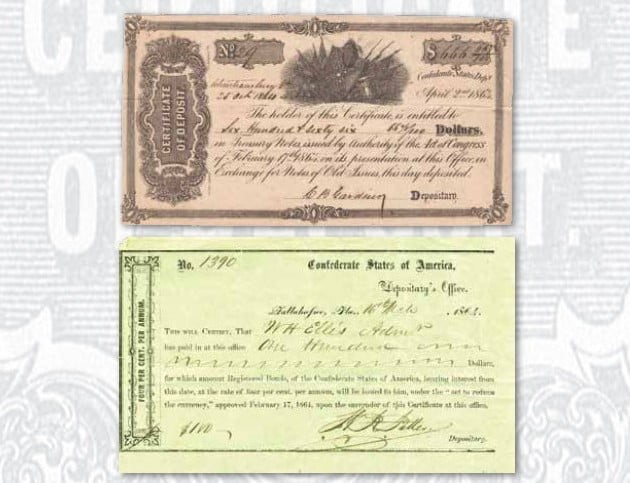 CERTIFICATE
OF DEPOSIT.
No. 29
$ 666
Confederate States Dept
25 Oct 1864
April 2nd 1864
The holder of this Certificate is entitled to
Six Hundred & Sixty six Dollars,
in Treasury Notes issued by authority of the Act of Congress
of February 17th 1864 on its presentation at this Office, in
Exchange for Notes of Old Issues this day deposited.
Depositary.
FOUR PER CENT. PER ANNUM.
No. 1390
Confederate States of America,
Depositary's Office.
Tallahassee, Fla. 16th 1864.
THIS WILL CERTIFY, That W H Ellis Admr
has paid in at this office One Hundred
Dollars,
for which amount Registered Bonds, of the Confederate States of America, bearing interest from
this date, at the rate of four per cent. per annum, will be issued to him, under the "act to reduce
the currency," approved February 17, 1864, upon the surrender of this Certificate at this office.
$100
Depositary.